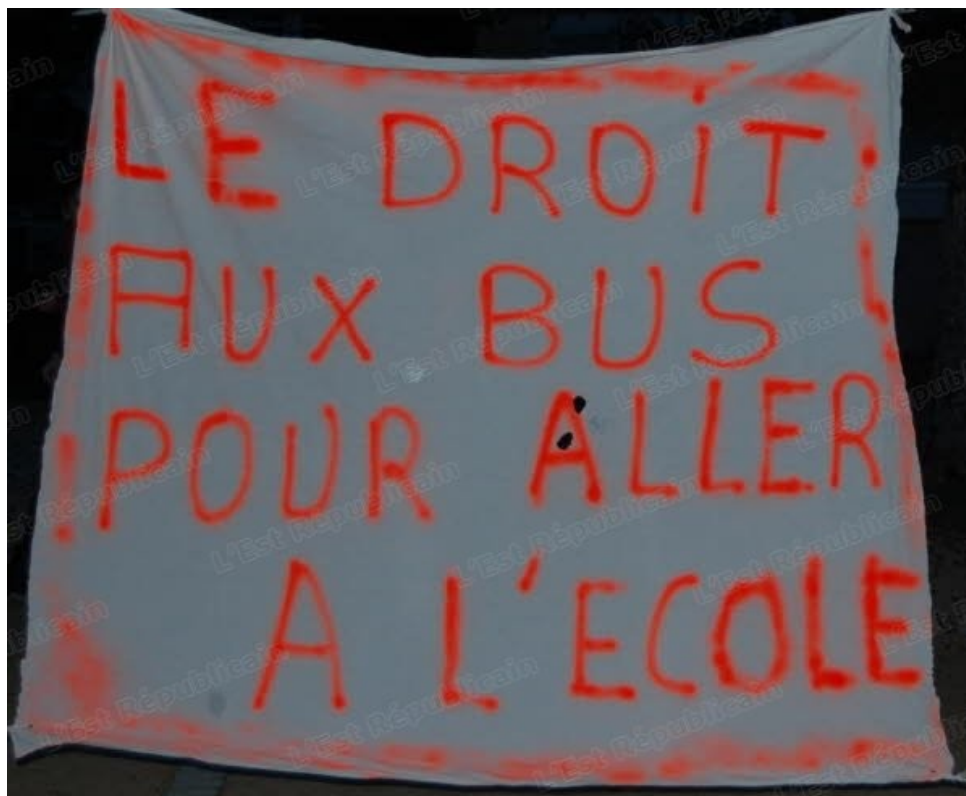 LE DROIT
AUX BUS
POUR ALLER
A L'ECOLE
L'Est Républicain